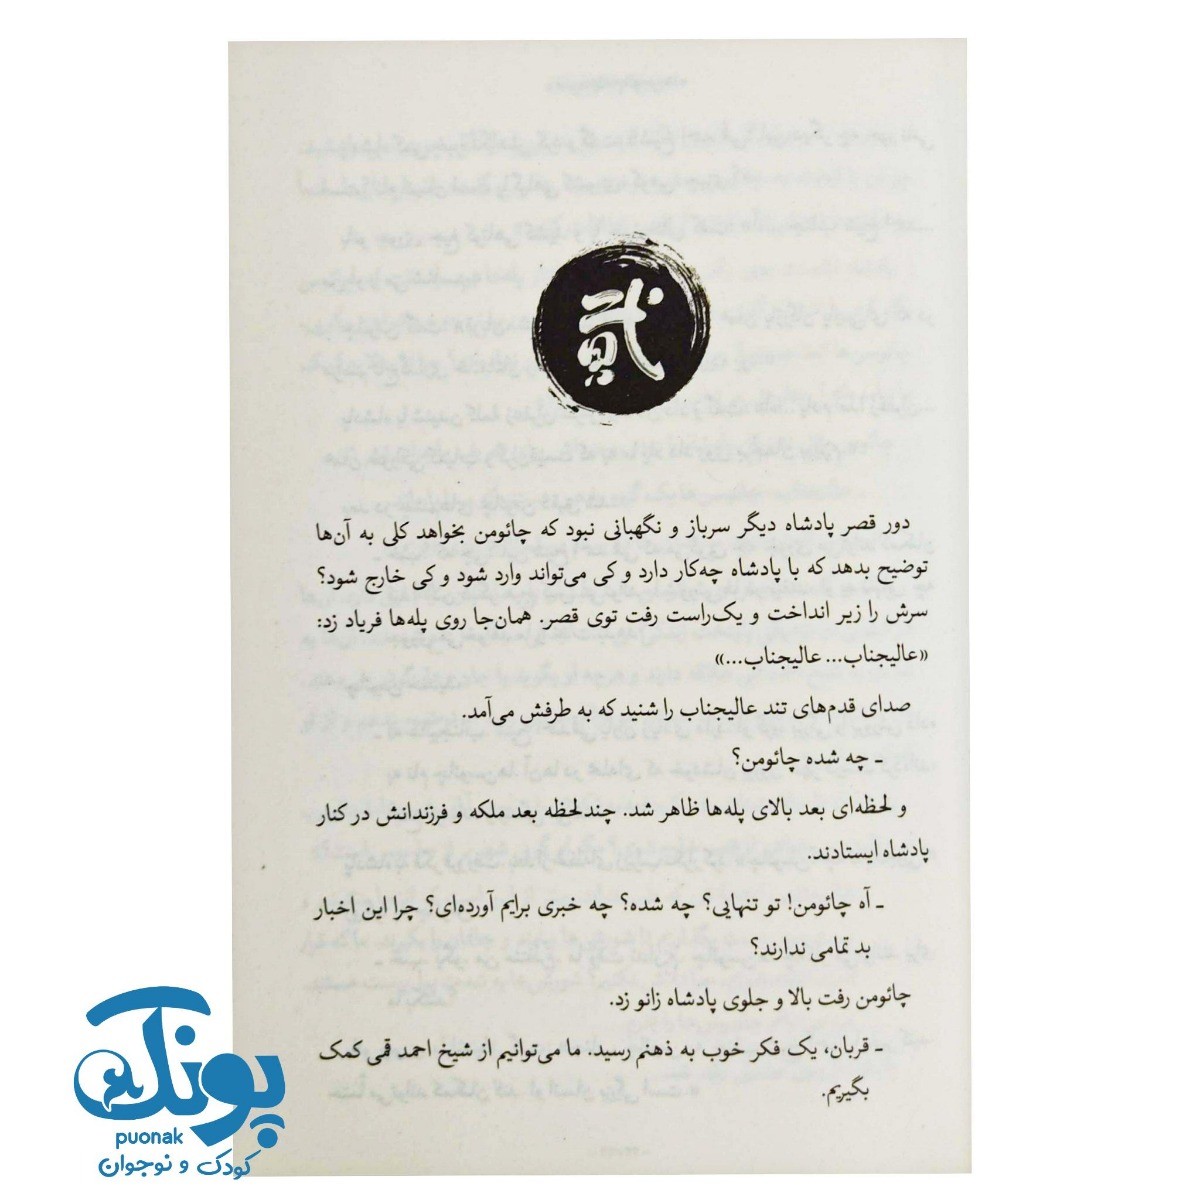 貳
دور قصر پادشاه دیگر سرباز و نگهبانی نبود که چائومن بخواهد کلی به آن‌ها
توضیح بدهد که با پادشاه چه‌کار دارد و کی می‌تواند وارد شود و کی خارج شود؟
سرش را زیر انداخت و یک‌راست رفت توی قصر. همان‌جا روی پله‌ها فریاد زد:
«عالیجناب... عالیجناب...»
صدای قدم‌های تند عالیجناب را شنید که به طرفش می‌آمد.
ـ چه شده چائومن؟
و لحظه‌ای بعد بالای پله‌ها ظاهر شد. چندلحظه بعد ملکه و فرزندانش در کنار
پادشاه ایستادند.
ـ آه چائومن! تو تنهایی؟ چه شده؟ چه خبری برایم آورده‌ای؟ چرا این اخبار
بد تمامی ندارند؟
چائومن رفت بالا و جلوی پادشاه زانو زد.
ـ قربان، یک فکر خوب به ذهنم رسید. ما می‌توانیم از شیخ احمد قمی کمک
بگیریم.
پونک
puonak
کودک و نوجوان